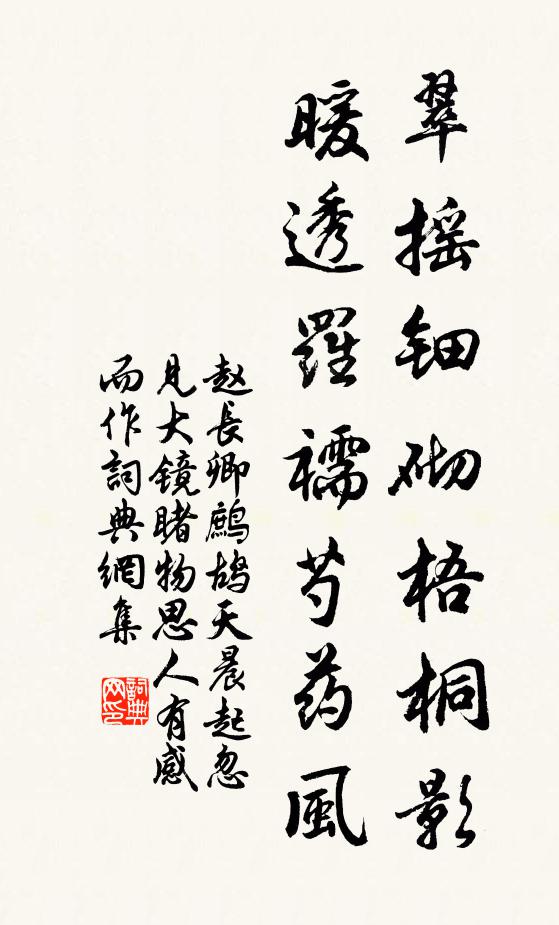 翠摇钿砌梧桐影
暖透羅襦芍药風
赵長卿鷓鴣天晨起忽
見大镜睹物思人有感
而作詞典網集
詞典
网印